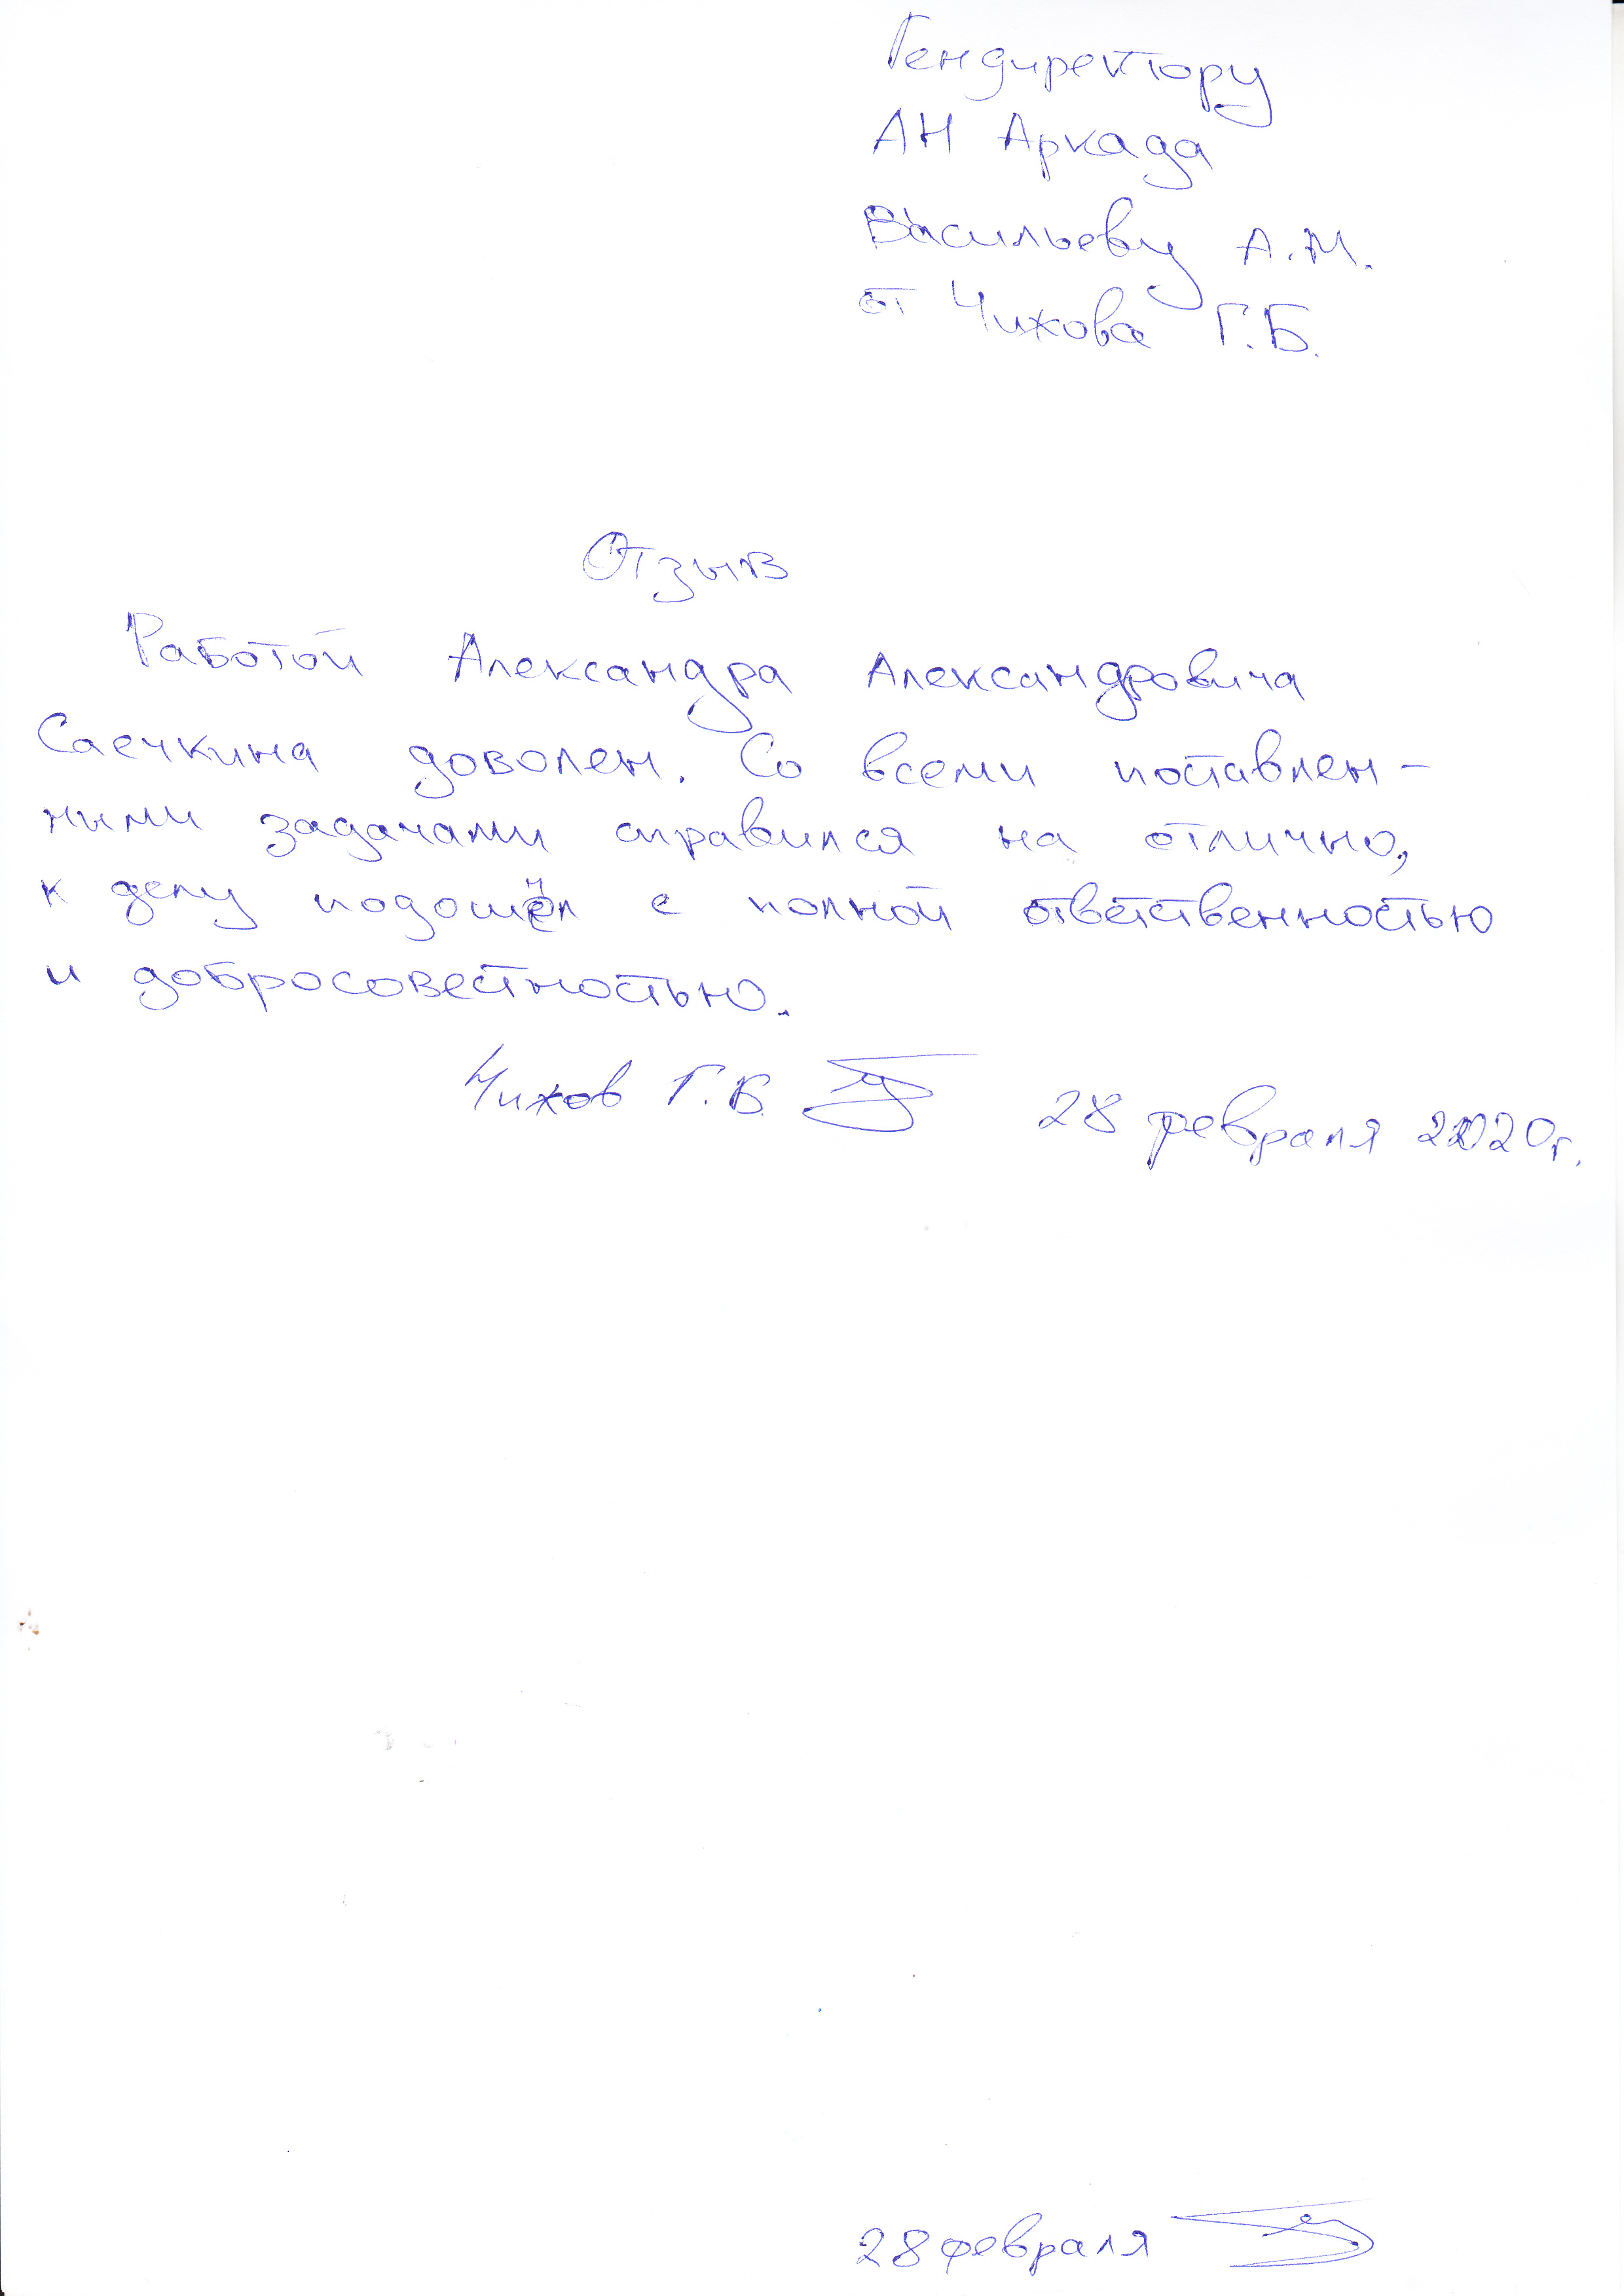 Гендиректору
АН Аркада
Васильеву А.М.
от Чихова Г.Б.
Отзыв
Работой Александра Александровича
Саечкина доволен. Со всеми поставлен-
ными задачами справился на отлично,
к делу подошёл с полной ответственностью
и добросовестностью.
Чихов Г.Б. 28 февраля 2020г.
28 февраля